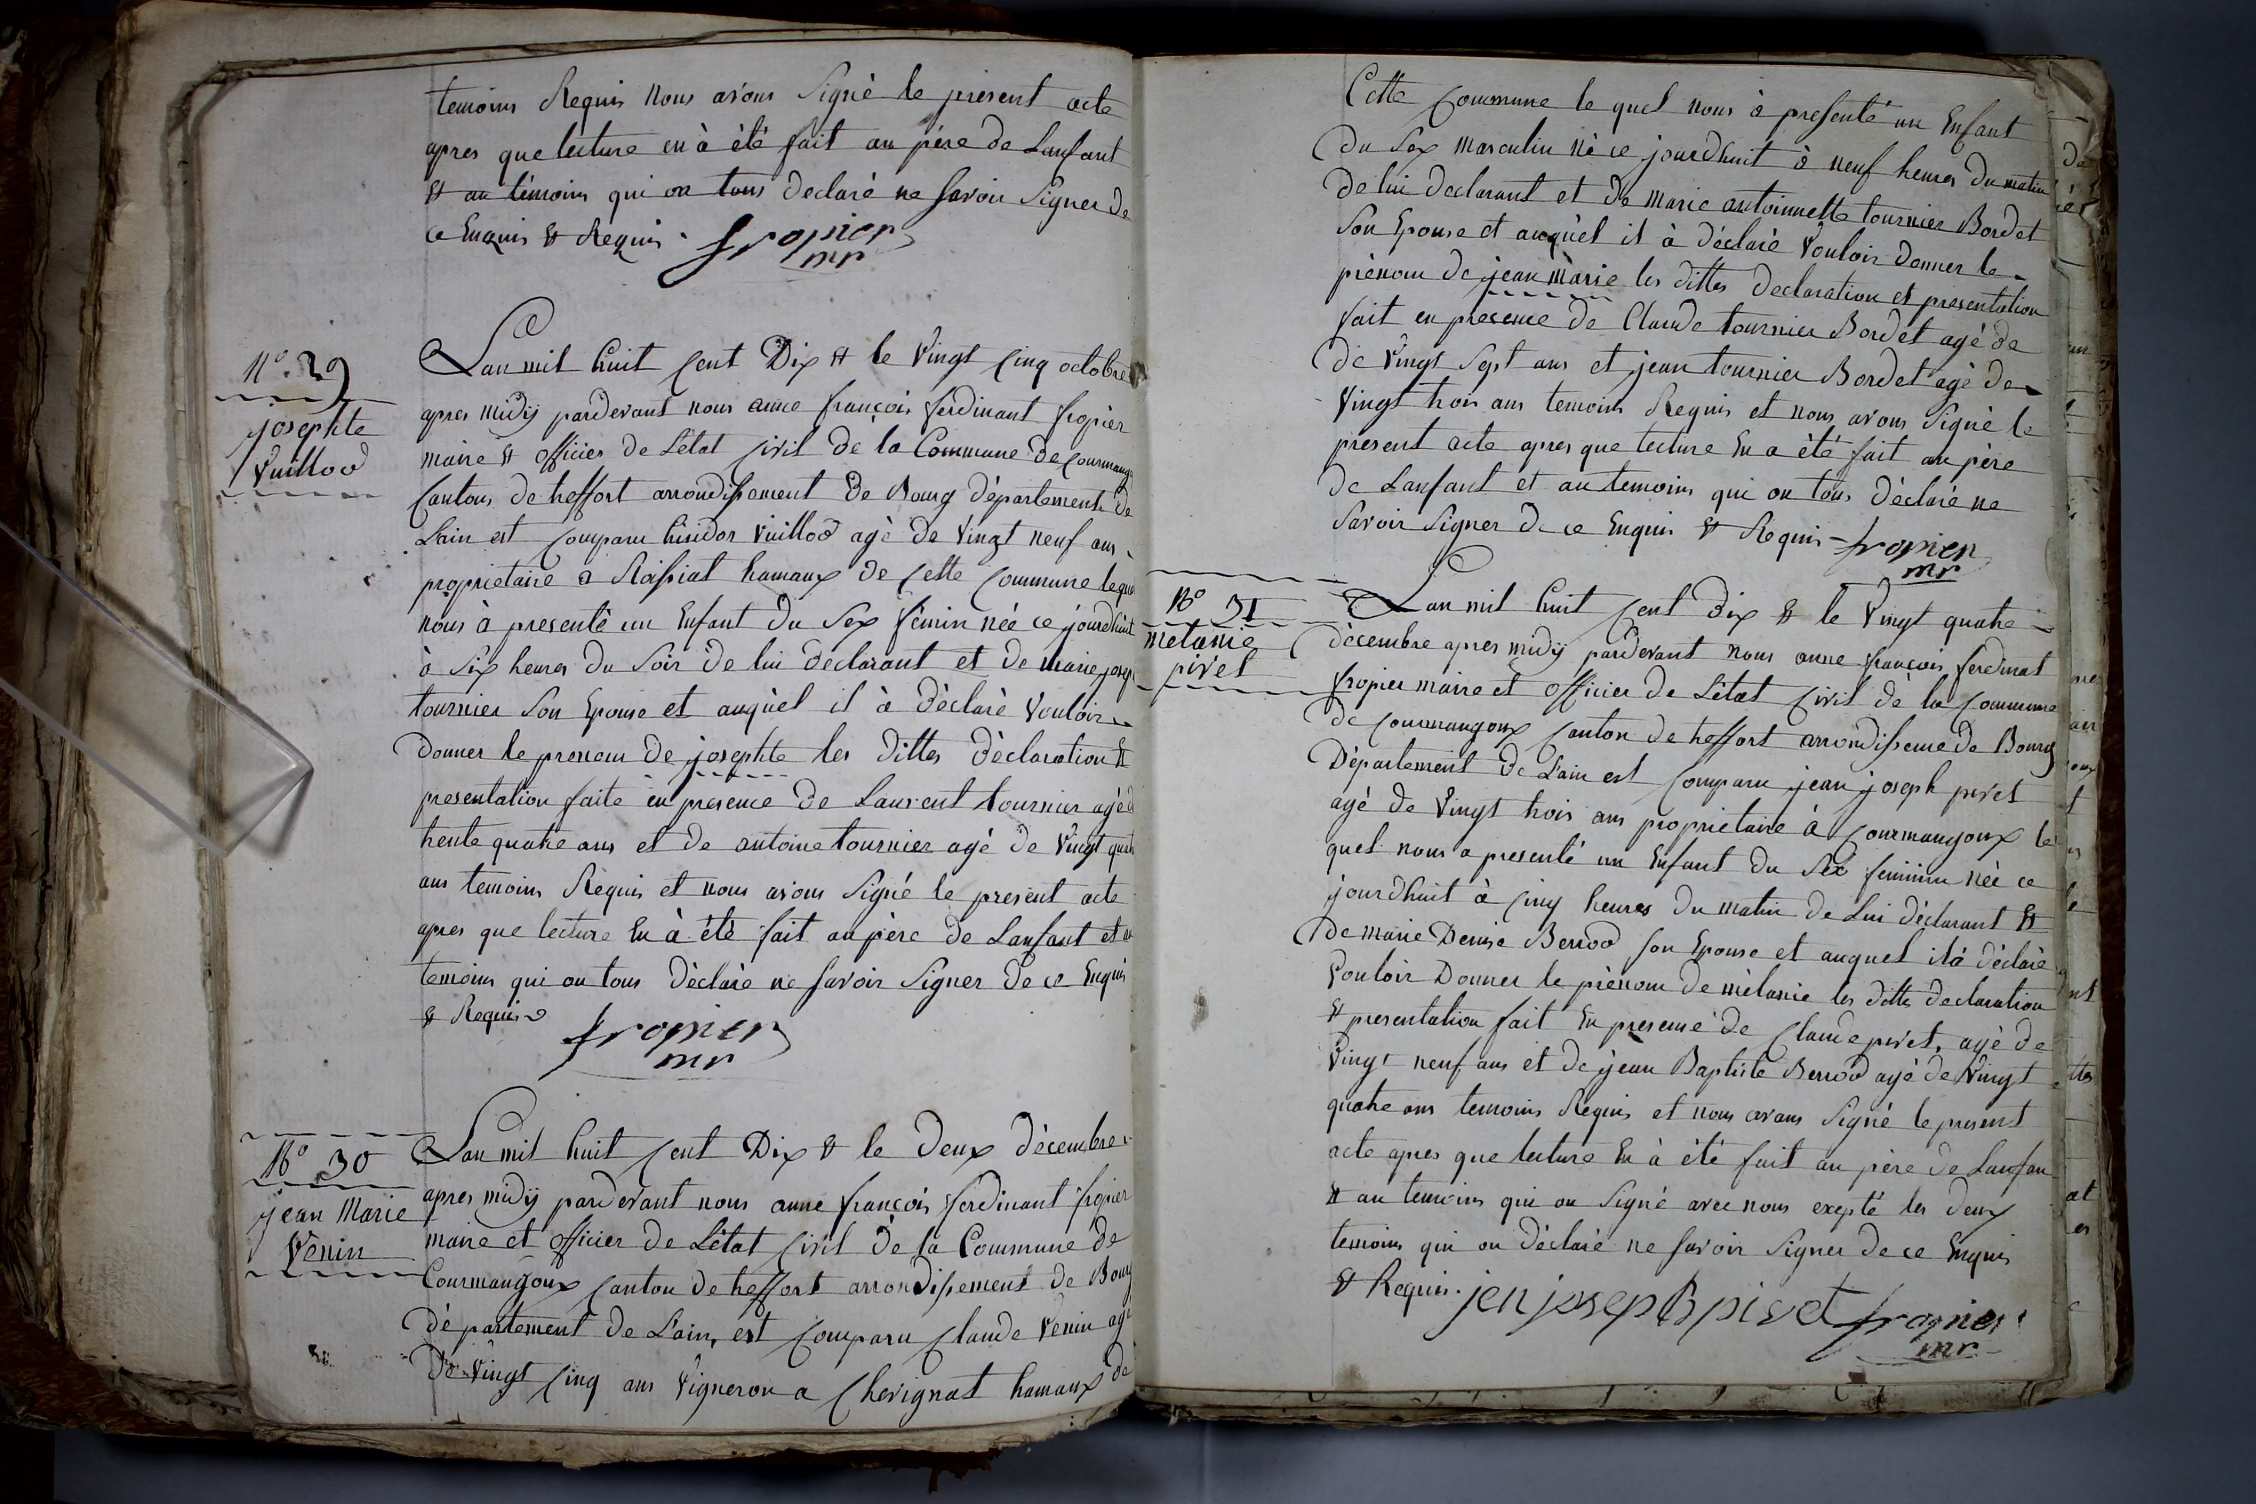 temoins Requis nous avons Signé le present acte
apres que lecture en à été fait au père de Lanfant
et au témoins qui on tous declaré ne savoir Signer de
ce Enquis et Requis. fropier
mr
N° 29
josephte
Vuillod
Lan mil huit cent Dix et le Vingt cinq octobre
apres midÿ pardevant nous anne françois ferdinant fropier
maire et officier de Létat civil de la Commune de courmang
canton de treffort arrondissement de Bourg département de
Lain est comparu Vuillod agé de Vingt neuf ans
proprietaire a Roissiat hamaux de cette commune lequ
nous à presenté un Enfant du Sex féminin née ce jourdhuit
à Six heures du Soir de lui declarant et de marie josep
tournier Son Epouse et auquel il à déclaré Vouloir
donner le prenom de josephte les dittes déclaration et
presentation faite en presence de Laurent tournier agé d
trente quatre ans et de antoine tournier agé de Vingt quatr
ans temoins Requis et nous avons Signé le present acte
apres que lecture En à été fait au père de Lanfant et au
temoins qui on tous déclaré ne savoir Signer de ce Enquis
et Requis
fropier
mr
N° 30
jean Marie
Venin
Lan mil huit cent Dix et le deux décembre
apres midÿ pardevant nous anne françois ferdinant fropier
maire et officier de Létat civil de la Commune de
Courmangoux canton de treffort arrondissement de Bourg
département de Lain, est comparu Claude Venin agé
de Vingt cinq ans Vigneron a Chevignat hamaux de
Cette commune le quel nous à presenté un Enfant
du Sex masculin né ce jourdhuit à neuf heures du matin
de lui declarant et de marie antoinnette tournier Bordet
Son Epouse et auquel il à déclaré Vouloir donner le
prénom de jean marie les dittes declaration et presentation
fait en presence de Claude tournier Bordet agé de
de Vingt Sept ans et jean tournier Bordet agé de
Vingt trois ans temoins Requis et nous avons Signé le
present acte apres que lecture En a été fait au père
de Lanfant et au temoins qui on tous déclaré ne
savoir Signer de ce Enquis et Requis fropier
mr
N° 31
melanie
pivet
Lan mil huit cent dix et le Vingt quatre
décembre apres midÿ pardevant nous anne françois ferdinat
fropier maire et officier de Létat civil de la commune
de courmangoux canton de treffort arrondisseme de Bourg
Département de Lain est comparu jean joseph pivet
agé de Vingt trois ans proprietaire à courmangoux le
quel nous a presenté un Enfant du Sex feminin née ce
jourdhuit à cinq heures du matin de Lui déclarant et
de marie Denise Berrod son Epouse et auquel il à déclaré
Vouloir Donner le prénom de mélanie les ditte declaration
et presentation fait En presence de Claude pivet, agé de
Vingt neuf ans et de jean Baptiste Berrod agé de Vingt
quatre ans temoins Requis et nous avans Signé le present
acte apres que lecture En à été fait au père de Lanfan
et au temoins qui on Signé avec nous exepté les deux
temoins qui on déclaré ne savoir Signer de ce Enquis
et Requis. jen joseph pivet fropier
mr